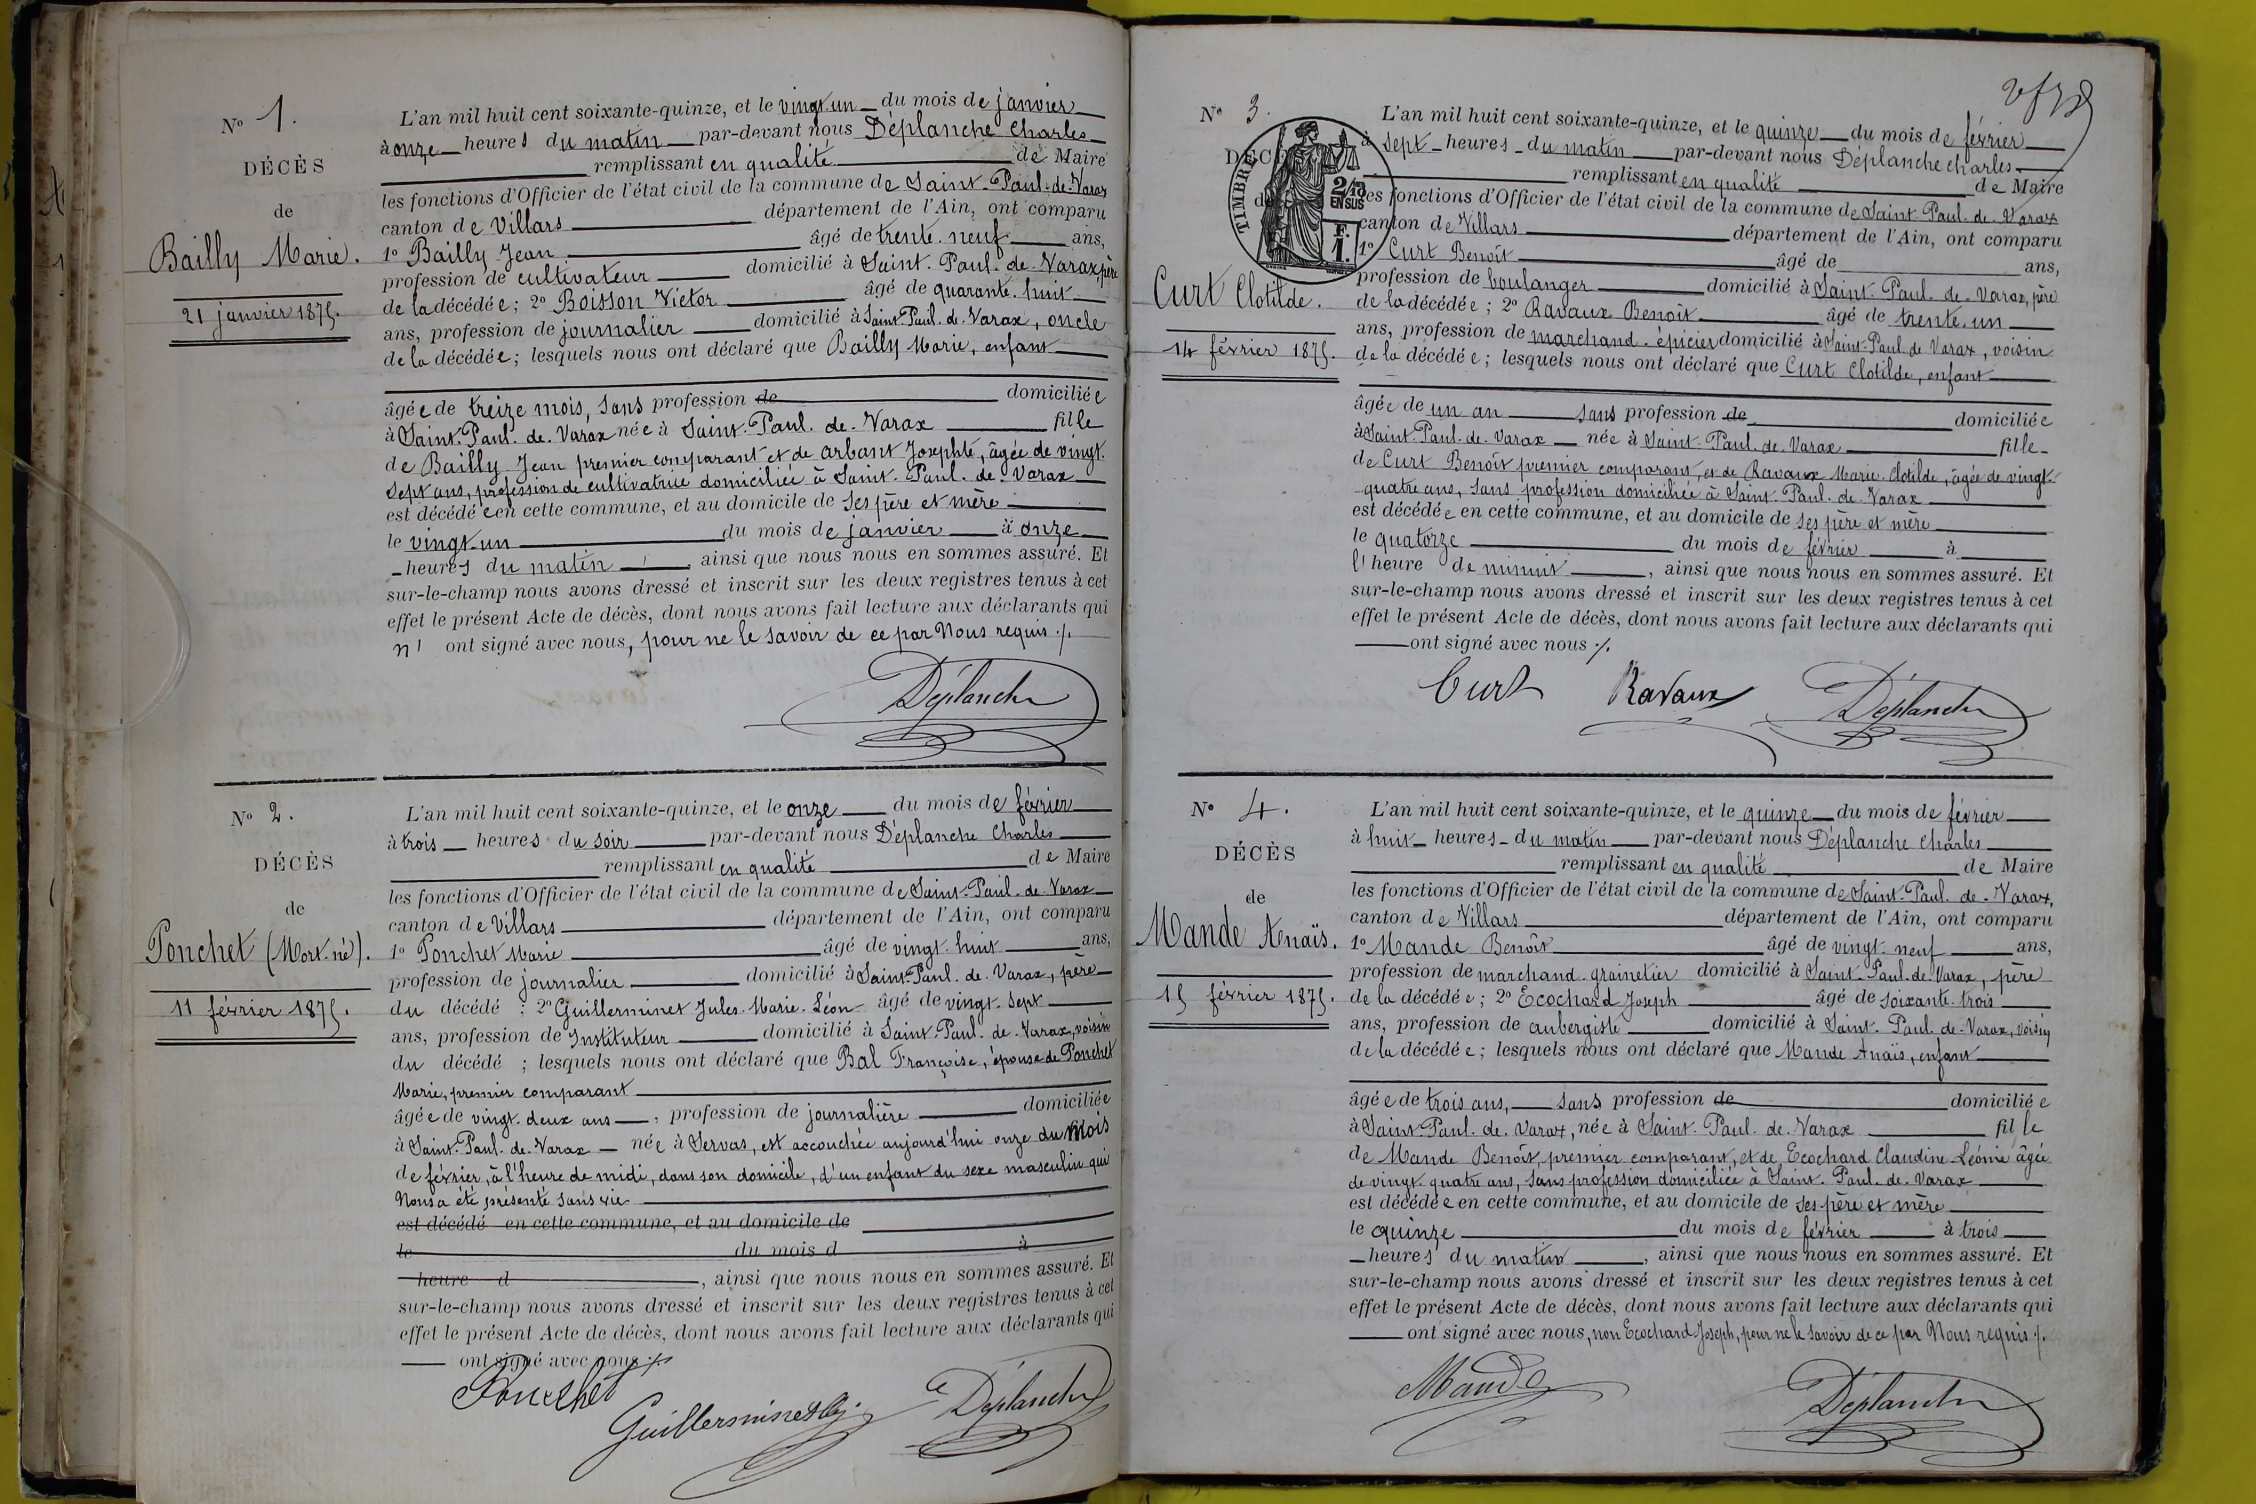 N° 1.
DÉCÈS
de
Bailly Marie.
21 janvier 1875.
L'an mil huit cent soixante-quinze, et le vingt-un du mois de janvier
à onze heures du matin par-devant nous Déplanche Charles
remplissant en qualité de Maire
les fonctions d'Officier de l'état civil de la commune de Saint-Paul-de-Varax
canton de Villars département de l'Ain, ont comparu
1° Bailly Jean âgé de trente-neuf ans,
profession de cultivateur domicilié à Saint-Paul-de-Varax père
de la décédée; 2° Boisson Victor âgé de quarante-huit
ans, profession de journalier domicilié à Saint-Paul-de-Varax, oncle
de la décédée; lesquels nous ont déclaré que Bailly Marie, enfant
âgée de treize mois, sans profession de domiciliée
à Saint-Paul-de-Varax née à Saint-Paul-de-Varax fille
de Bailly Jean premier comparant et de Arbant Josephte, âgée de vingt-
sept ans, profession de cultivatrice domiciliée à Saint-Paul-de-Varax
est décédée en cette commune, et au domicile de ses père et mère
le vingt-un du mois de janvier à onze
heures du matin, ainsi que nous nous en sommes assuré. Et
sur-le-champ nous avons dressé et inscrit sur les deux registres tenus à cet
effet le présent Acte de décès, dont nous avons fait lecture aux déclarants qui
n' ont signé avec nous, pour ne le savoir de ce par Nous requis ./.
Déplanche
N° 2.
DÉCÈS
de
Ponchet (Mort-né).
11 février 1875.
L'an mil huit cent soixante-quinze, et le onze du mois de février
à trois heures du soir par-devant nous Déplanche Charles
remplissant en qualité de Maire
les fonctions d'Officier de l'état civil de la commune de Saint-Paul-de-Varax
canton de Villars département de l'Ain, ont comparu
1° Ponchet Marie âgé de vingt-huit ans,
profession de journalier domicilié à Saint-Paul-de-Varax, père
du décédé : 2° Guillerminet Jules-Marie-Léon âgé de vingt-sept
ans, profession de Instituteur domicilié à Saint-Paul-de-Varax, voisin
du décédé ; lesquels nous ont déclaré que Bal Françoise, épouse de Ponchet
Marie, premier comparant
âgée de vingt-deux ans, profession de journalière domiciliée
à Saint-Paul-de-Varax née à Servas, est accouchée aujourd'hui onze du mois
de février, à l'heure de midi, dans son domicile, d'un enfant du sexe masculin qui
Nous a été présenté sans vie
est décédé en cette commune, et au domicile de
le du mois d à
heure d , ainsi que nous nous en sommes assuré. Et
sur-le-champ nous avons dressé et inscrit sur les deux registres tenus à cet
effet le présent Acte de décès, dont nous avons fait lecture aux déclarants qui
ont signé avec nous ./.
Ponchet
Déplanche
N° 3.
DÉCÈ
de
TIMBRE
2/10
EN SUS
F.
1.
Curt Clotilde.
14 février 1875.
L'an mil huit cent soixante-quinze, et le quinze du mois de février
à sept heures du matin par-devant nous Déplanche Charles
remplissant en qualité de Maire
les fonctions d'Officier de l'état civil de la commune de Saint-Paul-de-Varax
canton de Villars département de l'Ain, ont comparu
1° Curt Benoît âgé de ans,
profession de boulanger domicilié à Saint-Paul-de-Varax, père
de la décédée ; 2° Ravaux Benoit âgé de trente-un
ans, profession de marchand-épicier domicilié à Saint-Paul-de Varax, voisin
de la décédée ; lesquels nous ont déclaré que Curt Clotilde, enfant
âgée de un an sans profession de domiciliée
à Saint-Paul-de-Varax née à Saint-Paul-de-Varax fille
de Curt Benoît premier comparant, et de Ravaux Marie-Clotilde, âgée de vingt-
quatre ans, sans profession domiciliée à Saint-Paul-de-Varax
est décédée en cette commune, et au domicile de ses père et mère
le quatorze du mois de février à
l'heure de minuit, ainsi que nous nous en sommes assuré. Et
sur-le-champ nous avons dressé et inscrit sur les deux registres tenus à cet
effet le présent Acte de décès, dont nous avons fait lecture aux déclarants qui
ont signé avec nous ./.
Curt Ravaux Déplanche
N° 4.
DÉCÈS
de
Mande Anaïs.
15 février 1875.
L'an mil huit cent soixante-quinze, et le quinze du mois de février
à huit heures du matin par-devant nous Déplanche Charles
remplissant en qualité de Maire
les fonctions d'Officier de l'état civil de la commune de Saint-Paul-de-Varax,
canton de Villars département de l'Ain, ont comparu
1° Mande Benoît âgé de vingt-neuf ans,
profession de marchand-grainetier domicilié à Saint-Paul-de-Varax, père
de la décédée; 2° Ecochard Joseph âgé de soixante-trois
ans, profession de aubergiste domicilié à Saint-Paul-de-Varax, voisin
de la décédée; lesquels nous ont déclaré que Mande Anaïs, enfant
âgée de trois ans, sans profession de domiciliée
à Saint-Paul-de-Varax, née à Saint-Paul-de-Varax fille
de Mande Benoît, premier comparant, et de Ecochard Claudine Léonie âgée
de vingt-quatre ans, sans profession domiciliée à Saint-Paul-de-Varax
est décédée en cette commune, et au domicile de ses père et mère
le quinze du mois de février à trois
heures du matin, ainsi que nous nous en sommes assuré. Et
sur-le-champ nous avons dressé et inscrit sur les deux registres tenus à cet
effet le présent Acte de décès, dont nous avons fait lecture aux déclarants qui
ont signé avec nous, non Ecochard Joseph, pour ne le savoir de ce par Nous requis ./.
Mande Déplanche